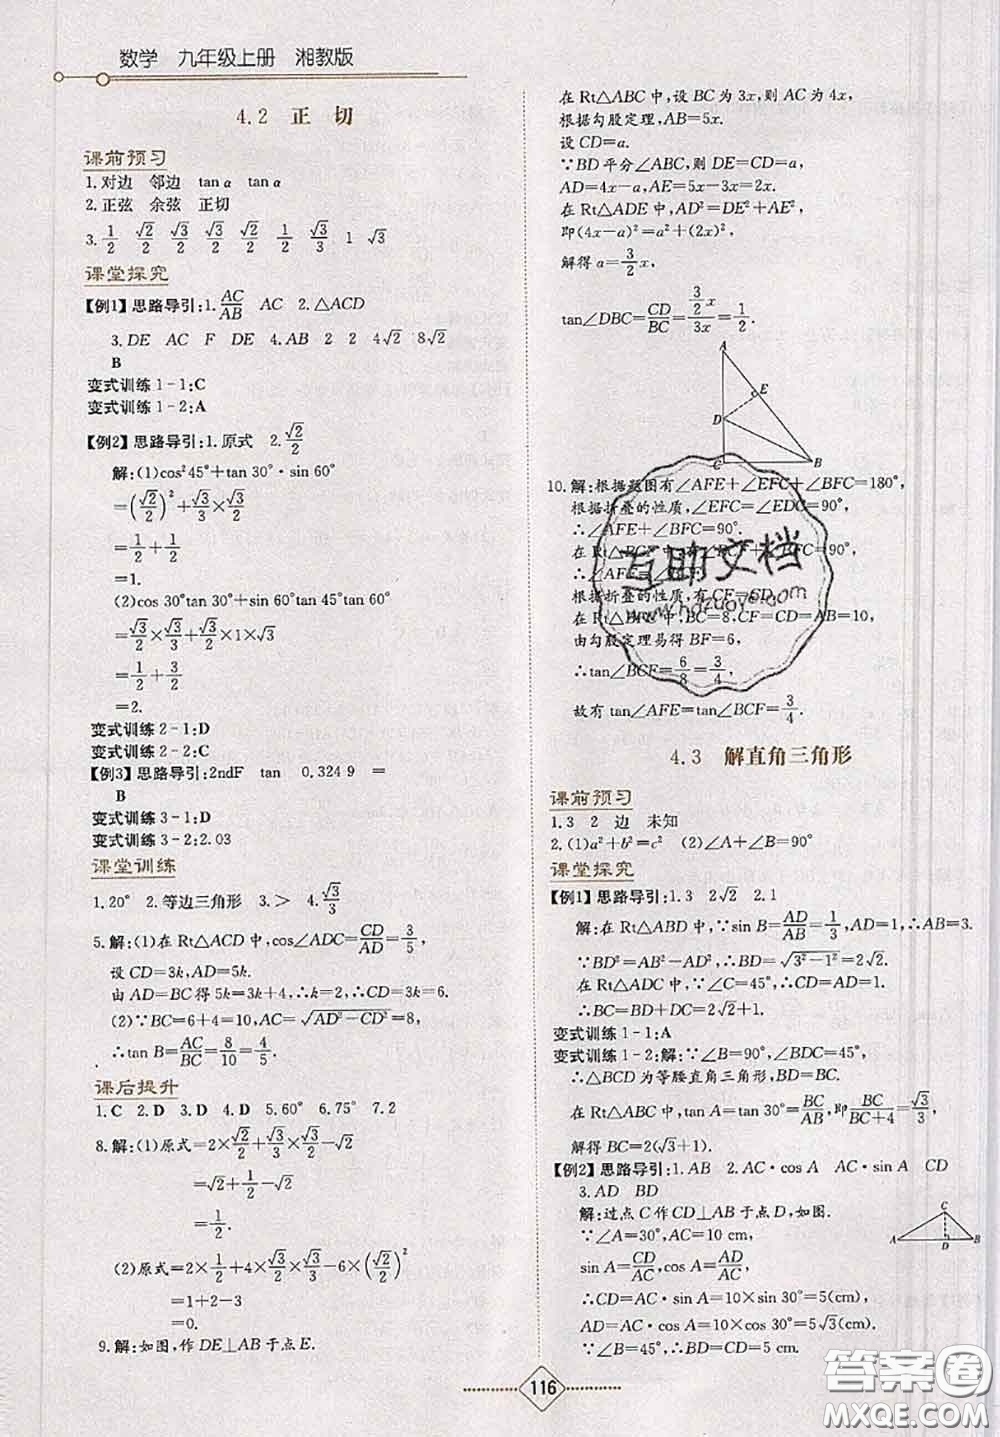 数学　九年级上册　湘教版
4.2　正　切
课前预习
1.对边　邻边　tan α　tan α
2.正弦　余弦　正切
3. 1/2　√2/2　√3/2　√3/2　√2/2　1/2　√3/3　1　√3
课堂探究
【例1】思路导引:1. AC/AB　AC　2.△ACD
3.DE　AC　F　DE　4.AB　2　2　4√2　8√2
B
变式训练1-1:C
变式训练1-2:A
【例2】思路导引:1.原式　2. √2/2
解:(1)cos²45°+tan 30°·sin 60°
=(√2/2)²+√3/3×√3/2
=1/2+1/2
=1.
(2)cos 30°tan 30°+sin 60°tan 45°tan 60°
=√3/2×√3/3+√3/2×1×√3
=1/2+3/2
=2.
变式训练2-1:D
变式训练2-2:C
【例3】思路导引:2ndF　tan　0.324 9　=
B
变式训练3-1:D
变式训练3-2:2.03
课堂训练
1.20°　2.等边三角形　3.>　4. √3/3
5.解:(1)在Rt△ACD中,cos∠ADC=CD/AD=3/5,
设CD=3k,AD=5k.
由AD=BC得5k=3k+4,∴k=2,∴CD=3k=6.
(2)∵BC=6+4=10,AC=√(AD²-CD²)=8,
∴tan B=AC/BC=8/10=4/5.
课后提升
1.C　2.D　3.D　4.D　5.60°　6.75°　7.2
8.解:(1)原式=2×√2/2+√3/3×√3/2-√2
=√2+1/2-√2
=1/2.
(2)原式=2×1/2+4×√3/2×√3/3-6×(√2/2)²
=1+2-3
=0.
9.解:如图,作DE⊥AB于点E.
在Rt△ABC中,设BC为3x,则AC为4x,
根据勾股定理,AB=5x.
设CD=a.
∵BD平分∠ABC,则DE=CD=a,
AD=4x-a,AE=5x-3x=2x.
在Rt△ADE中,AD²=DE²+AE²,
即(4x-a)²=a²+(2x)²,
解得a=3/2 x,
tan∠DBC=CD/BC=(3/2 x)/3x=1/2.
A
E
D
C
B
10.解:根据题图有∠AFE+∠EFC+∠BFC=180°,
根据折叠的性质,∠EFC=∠EDC=90°,
∴∠AFE+∠BFC=90°.
在Rt△BCF中,有∠BCF+∠BFC=90°,
∴∠AFE=∠BCF.
根据折叠的性质,有CF=CD,
在Rt△BFC中,BC=8,CF=CD=AB=10,
由勾股定理易得BF=6,
∴tan∠BCF=6/8=3/4,
故有tan∠AFE=tan∠BCF=3/4.
互助文档
www.hdzuoye.com
4.3　解直角三角形
课前预习
1.3　2　边　未知
2.(1)a²+b²=c²　(2)∠A+∠B=90°
课堂探究
【例1】思路导引:1.3　2√2　2.1
解:在Rt△ABD中,∵sin B=AD/AB=1/3,AD=1,∴AB=3.
∵BD²=AB²-AD²,∴BD=√(3²-1²)=2√2.
在Rt△ADC中,∵∠C=45°,∴CD=AD=1.
∴BC=BD+DC=2√2+1.
变式训练1-1:A
变式训练1-2:解:∵∠B=90°,∠BDC=45°,
∴△BCD为等腰直角三角形,BD=BC.
在Rt△ABC中,tan A=tan 30°=BC/AB,即BC/(BC+4)=√3/3,
解得BC=2(√3+1).
【例2】思路导引:1.AB　2.AC·cos A　AC·sin A　CD
3.AD　BD
解:过点C作CD⊥AB于点D,如图.
∵∠A=30°,AC=10 cm,
sin A=CD/AC,cos A=AD/AC.
∴CD=AC·sin A=10×sin 30°=5(cm),
AD=AC·cos A=10×cos 30°=5√3(cm).
C
A
D
B
116
答案圈
MXQE.COM